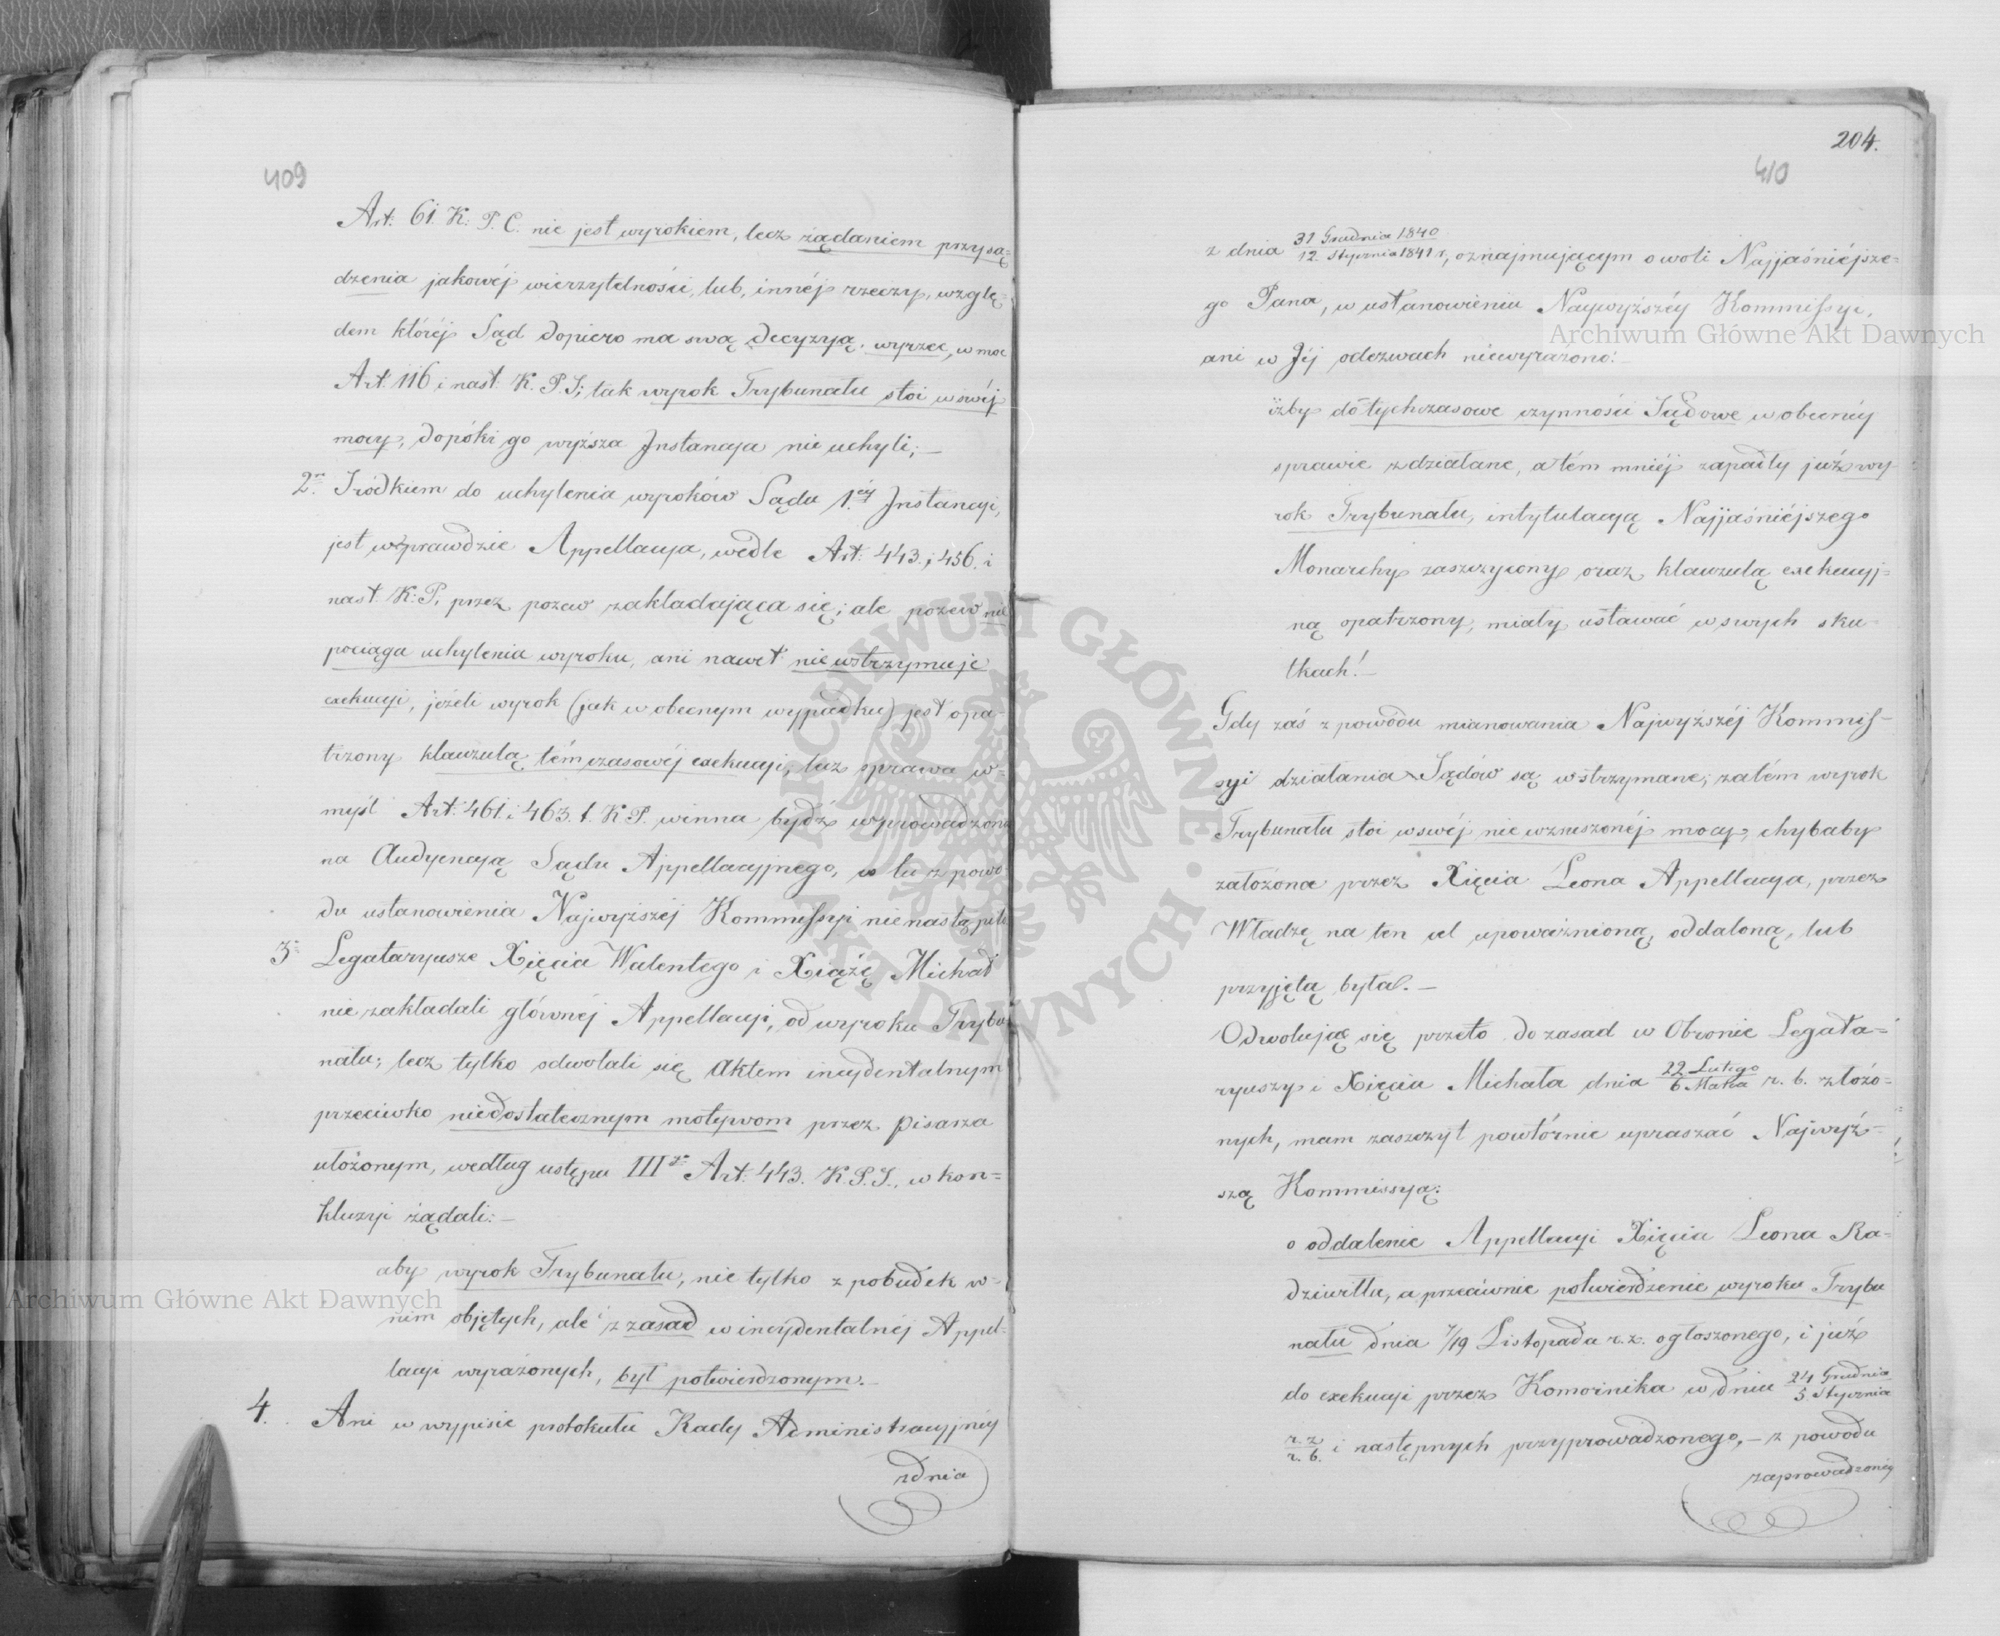 409
Art: 61. K: P. C. nie jest wyrokiem, lecz żądaniem przysą=
dzenia jakowéj wierzytelności, lub, innéj rzeczy, wzglę=
dem któréj Sąd dopiero ma swą decyzyją, wyrzec, w moc
Art: 116 i nast: K. P. S; tak wyrok Trybunału stoi w swéj
mocy, dopóki go wyższa Instancja nie uchyli; —
2re Śródkiem do uchylenia wyroków Sądu 1.éj Instancyi,
jest wprawdzie Appellacya, wedle Art: 443. i 456. i
nast: K: P, przez pozew zakładająca się; ale pozew nie
pociąga uchylenia wyroku, ani nawet nie wstrzymuje
exekucyi, jeżeli wyrok (jak w obecnym wypadku) jest opa-
trzony klauzulą témczasowéj exekucyi, lecz sprawa w-
myśl Art: 461. i 463. t. K. P. winna bydź wprowadzona
na Audyencyą Sądu Appellacyjnego, co tu z powo
du ustanowienia Najwyższéj Kommissyi nie nastąpiło
3e Legataryusze Xięcia Walentego i Xiążę Michał
nie zakładali głównéj Appellacyi, od wyroku Trybu
nału; lecz tylko odwołali się Aktem incydentalnym
przeciwko niedostatecznym motywom przez Pisarza
ułożonym, według ustępu III go Art: 443. K. P. S., w kon=
kluzyi żądali: —
aby wyrok Trybunału, nie tylko z pobudek w=
nim objętych, ale i z zasad w incydentalnéj Appel-
lacyi wyrażonych, był potwierdzonym. —
4. Ani w wypisie protokułu Rady Administracyjnéj
z dnia
204.
410
z dnia 31 Grudnia 1840
12. Stycznia 1841 r, oznajmującym o woli Najjaśniéjsze=
go Pana, w ustanowieniu Najwyższéj Kommissyi,
ani w Jéj odezwach niewyrażono: —
iżby dotychczasowe czynności Sądowe w obecnéj
sprawie zdziałane, a tém mniéj zapadły już wy-
rok Trybunału, intytulacyą Najjaśniéjszego
Monarchy zaszczycony oraz klauzulą exekucyj=
ną opatrzony, miały ustawać w swych sku-
tkach! —
Gdy zaś z powodu mianowania Najwyższéj Kommis-
syi działania Sądów są wstrzymane; zatém wyrok
Trybunału stoi w swéj nie wzruszonéj mocy, chybaby
założona przez Xięcia Leona Appellacya, przez
Władzę na ten cel upoważnioną, oddaloną, lub
przyjętą była. —
Odwołując się przeto do zasad w Obronie Legata=
ryuszy i Xięcia Michała dnia 22 Lutego
6 Marca r. b. złożo-
nych, mam zaszczyt powtórnie upraszać Najwyż-
szą Kommissyą:
o oddalenie Appellacyi Xięcia Leona Ra-
dziwiłła, a przeciwnie potwierdzenie wyroku Trybu
nału dnia 7/19 Listopada r. z. ogłoszonego, i już
do exekucyi przez Komornika w dniu 24 Grudnia
5 Stycznia
r. z
r. b. i następnych przyprowadzonego, — z powodu
zaprowadzonéj
Archiwum Główne Akt Dawnych
Archiwum Główne Akt Dawnych
ARCHIWUM GŁÓWNE · AKT DAWNYCH ·